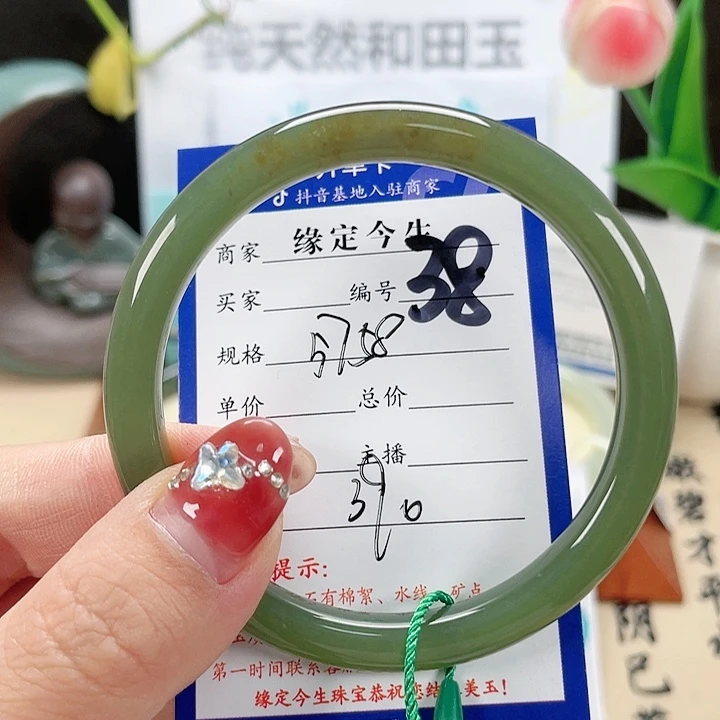 纯天然和田玉
抖音基地入驻商家
商家 缘定今生
买家 编号 38
规格 5758
单价 总价
主播
390
提示:
有棉絮、水线、矿点
第一时间联系客
缘定今生珠宝恭祝 结 美玉!